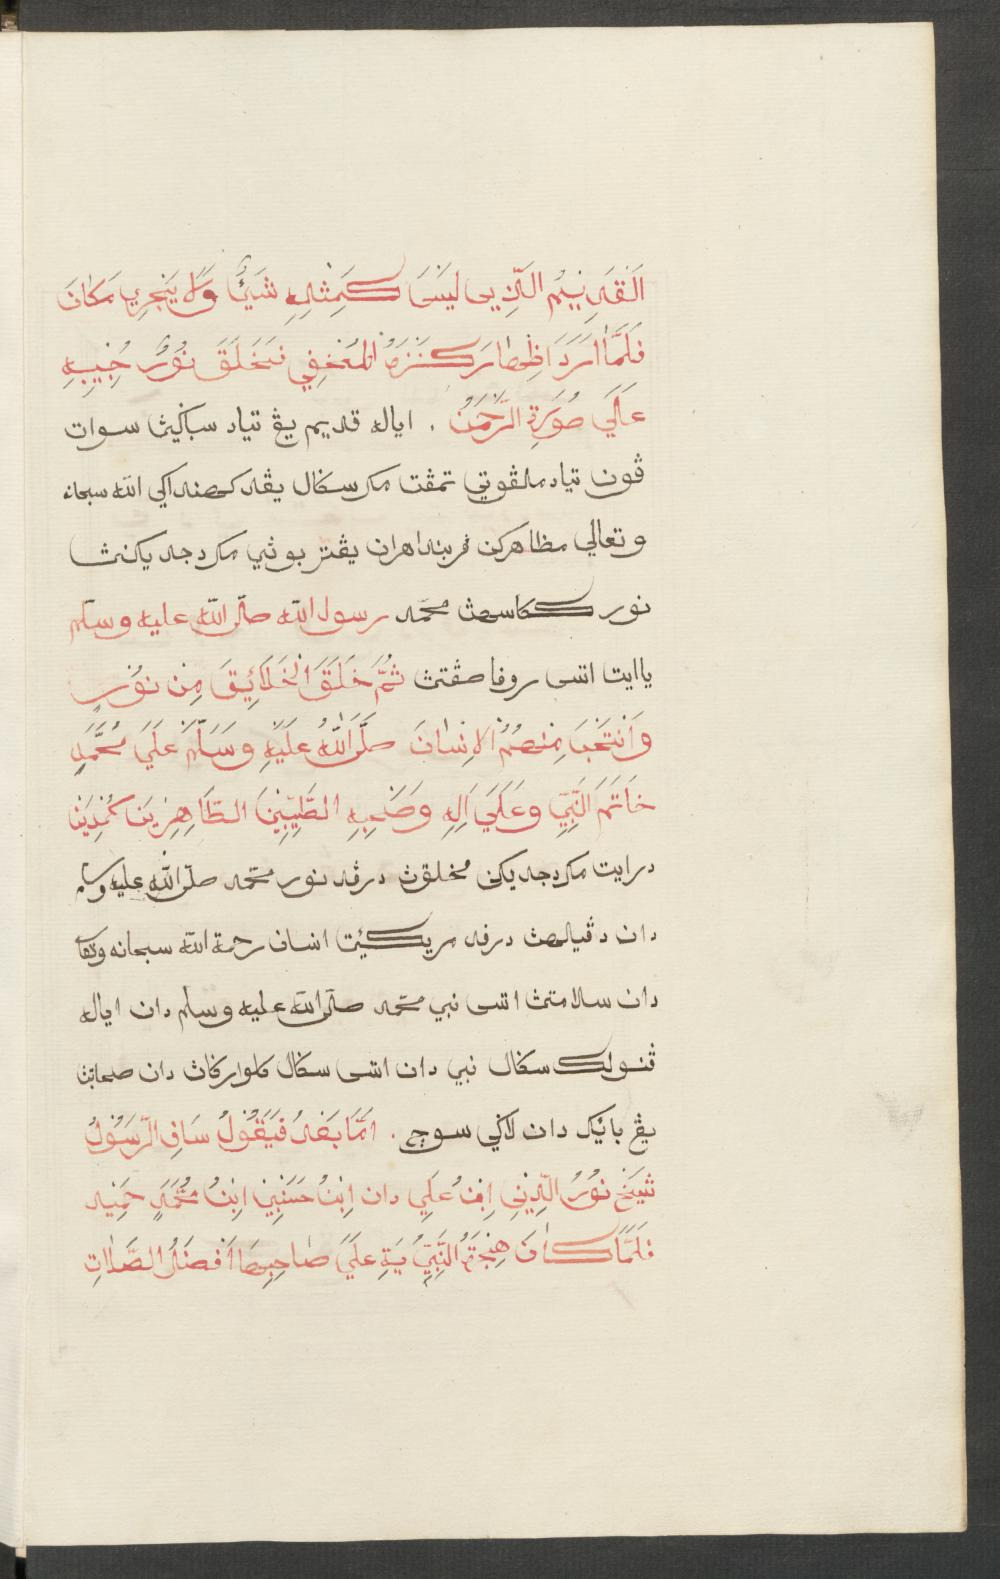 اَلْقَدِيْمُ الَّذِيْ لَيْسَ كَمِثْلِهِ شَيْئٌ وَلَا يَجْرِيْ مَكَانَ
فَلَمَّا اَرَدَ اظْهَارَ كَنْزَهُ المَخْفِي فَخَلَقَ نُوْرُ حَبِيْبِهِ
عَلَي صُوْرَةِ الرَّحْمٰنُ . اياله قديم يڠ تياد سباݢيڽ سوات
ڤون تياد ملڠوتي تمڤت مک سݢال يڠد کهنداکي الله سبحانه
وتعالي مظاهرکن فربنداهران يڠتر بوڽي مک دجديکنڽ
نور ککاسهڽ محمّد رسول الله صلّى الله عليه وسلّم
ياايت اتس روفا صفتڽ ثُمَّ خَلَقَ الْخَلَائِقَ مِنْ نُوْرِهِ
وَانْتَخَبَ مِنْهُمُ الاِنْسَانَ صَلَّى اللهُ عَلَيْهِ وَسَلَّمَ عَلَي مُحَمَّدٍ
خَاتَمَ النَّبِيِّ وَعَلَي اَلِهِ وَصَحْبِهِ الطَّيِّبِيْنَ الطَّاهِرِيْنَ کمدين
درايت مک دجديکن مخلوقڽ درڤد نور محمّد صلّى الله عليه وسلم
دان دڤيالهڽ درفد مريکئيت انسان رحمة الله سبحانه وتعالى
دان سلامتڽ اتس نبي محمّد صلّى الله عليه وسلم دان اياله
ڤنولک سݢال نبي دان اتس سݢال کلوارݢاڽ دان صحابتڽ
يڠ بائيک دان لاݢي سوچي . اَمَّا بَعْدُ فَيَقُوْلُ سَافِ الرَّسُوْلُ
شَيْخ نُوْرُ الدِّيْنِ اِبْنُ عَلِي دان اِبْنُ حَسَنِيْنِ اِبْنُ مُحَمَّدٍ حَمِيْد
فَلَمَّا كَانَ هِجْرَةُ النَّبِيِّ يَةِ عَلَي صَاحِبِهَا اَفْضَلُ الصَّلَاتِ